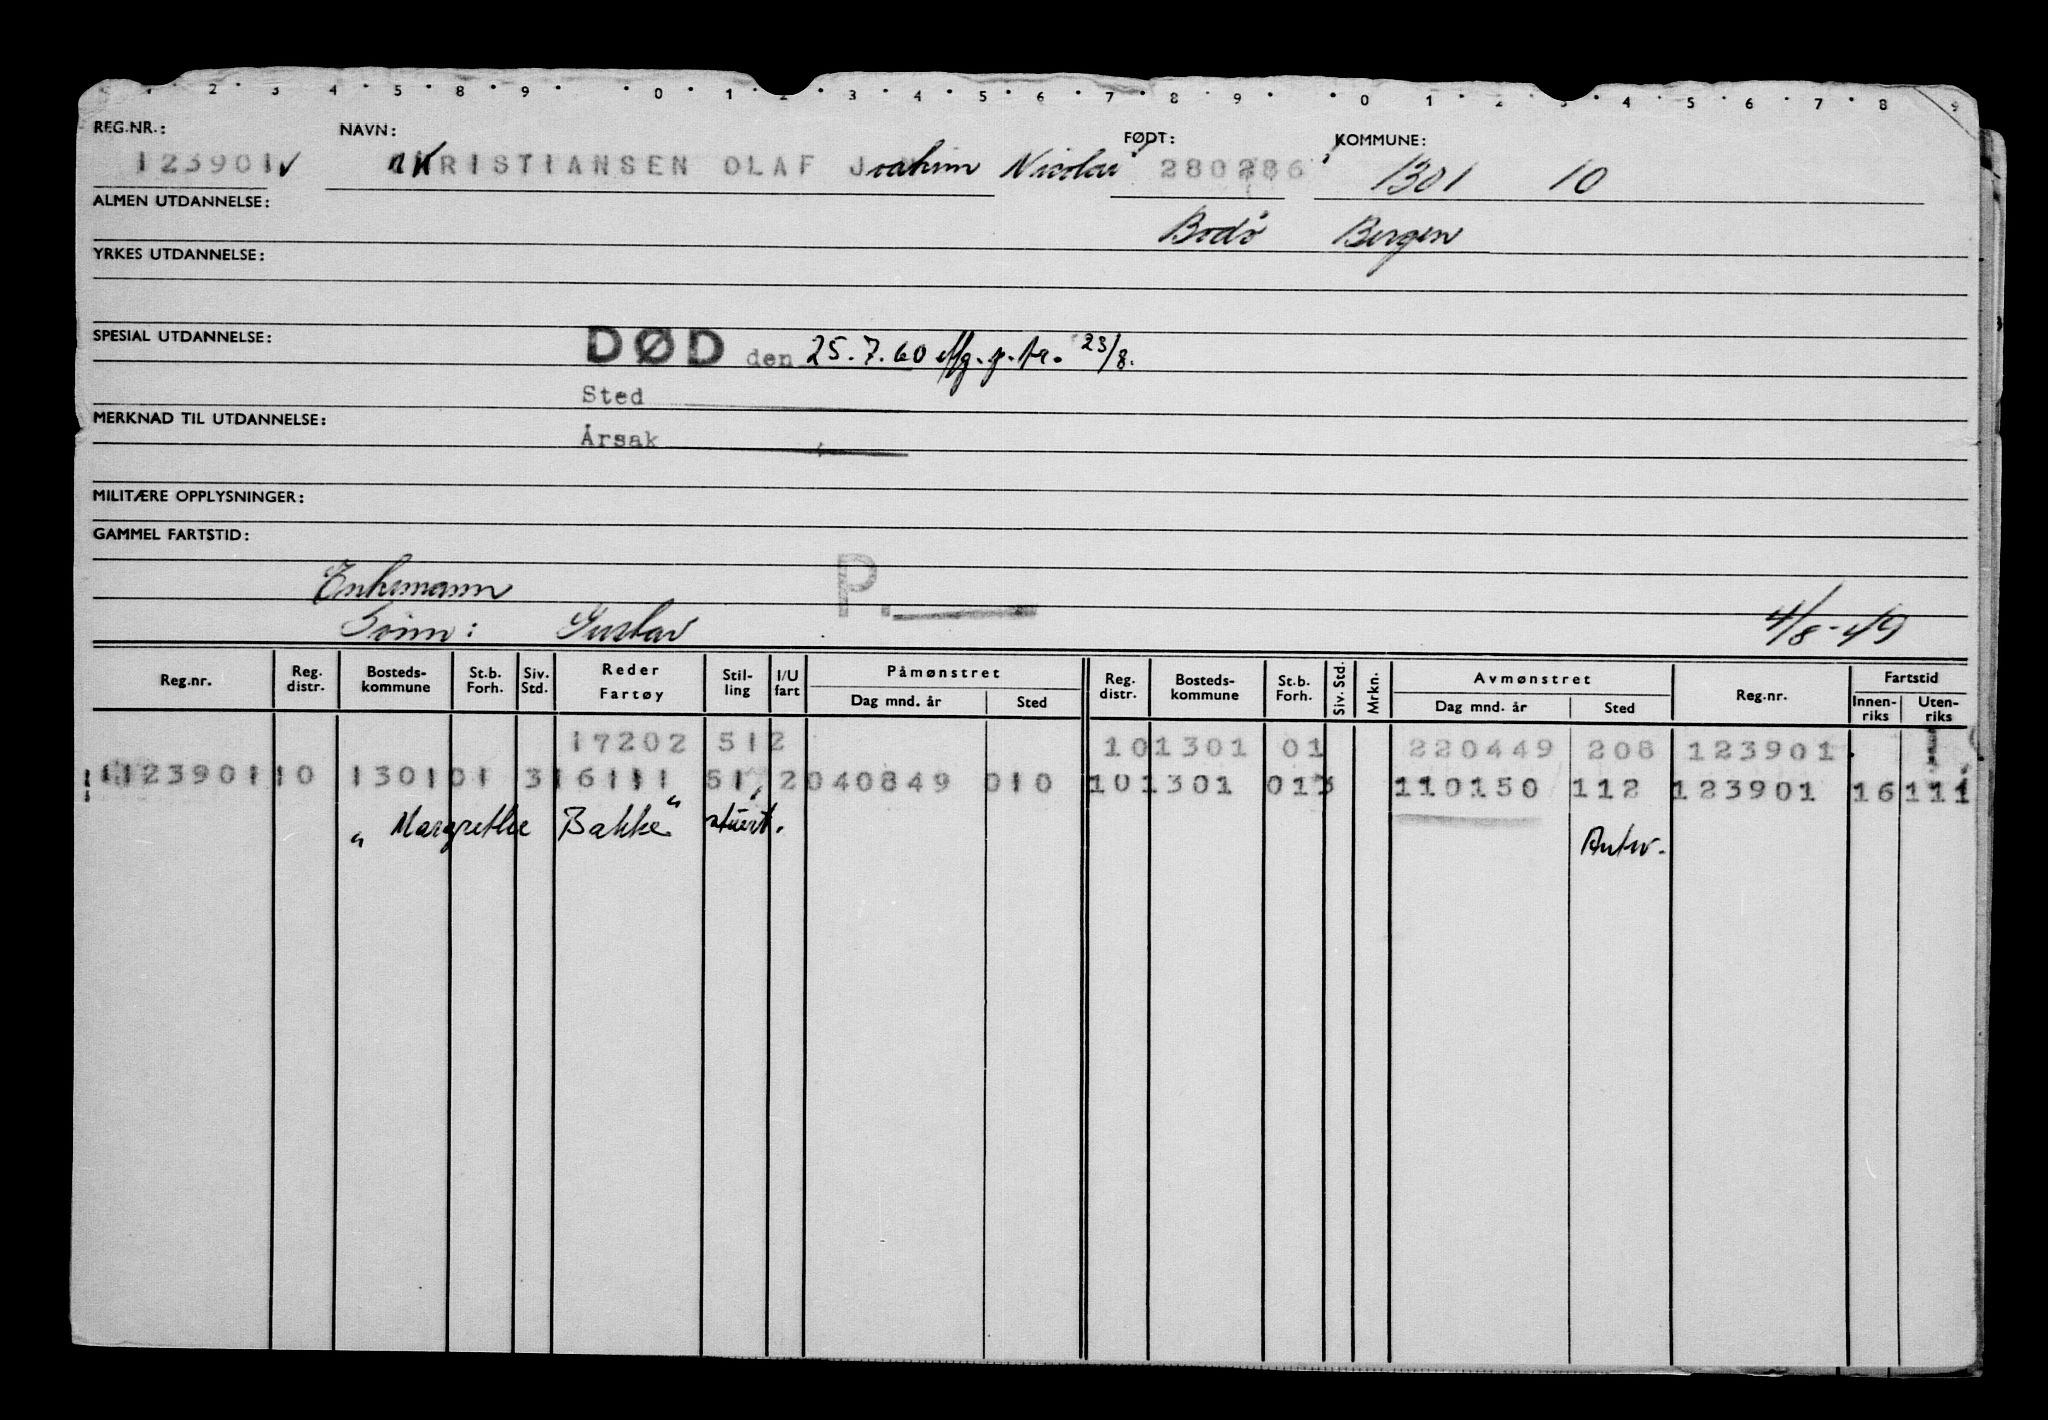 1 2 3 4 5 8 9 0 1 2 3 4 5 6 7 8 9 0 1 2 3 4 5 6 7 8 9
REG.NR.: NAVN: FØDT: KOMMUNE:
123901 KRISTIANSEN OLAF Joakim Nicolai 280286 1301 10
ALMEN UTDANNELSE:
Bodø Bergen
YRKES UTDANNELSE:
SPESIAL UTDANNELSE:
DØD den 25.7.60 23/8.
Sted
MERKNAD TIL UTDANNELSE:
Årsak
MILITÆRE OPPLYSNINGER:
GAMMEL FARTSTID:
Enkemann P.
Sønn: Gustav 4/8-49
Reg.nr. Reg. distr. Bosteds-kommune St.b. Forh. Siv. Std. Reder Fartøy Stil-ling I/U fart Påmønstret Dag mnd. år Sted Reg. distr. Bosteds-kommune St.b. Forh. Siv. Std. Mrkn. Avmønstret Dag mnd. år Sted Reg.nr. Fartstid Innen-riks Uten-riks
17202 512 101301 01 220449 208 123901
112390110 130101 316111 51 2040849 010 101301 013 110150 112 123901 16111
"Margrethe Bakke" stuert. Antw.